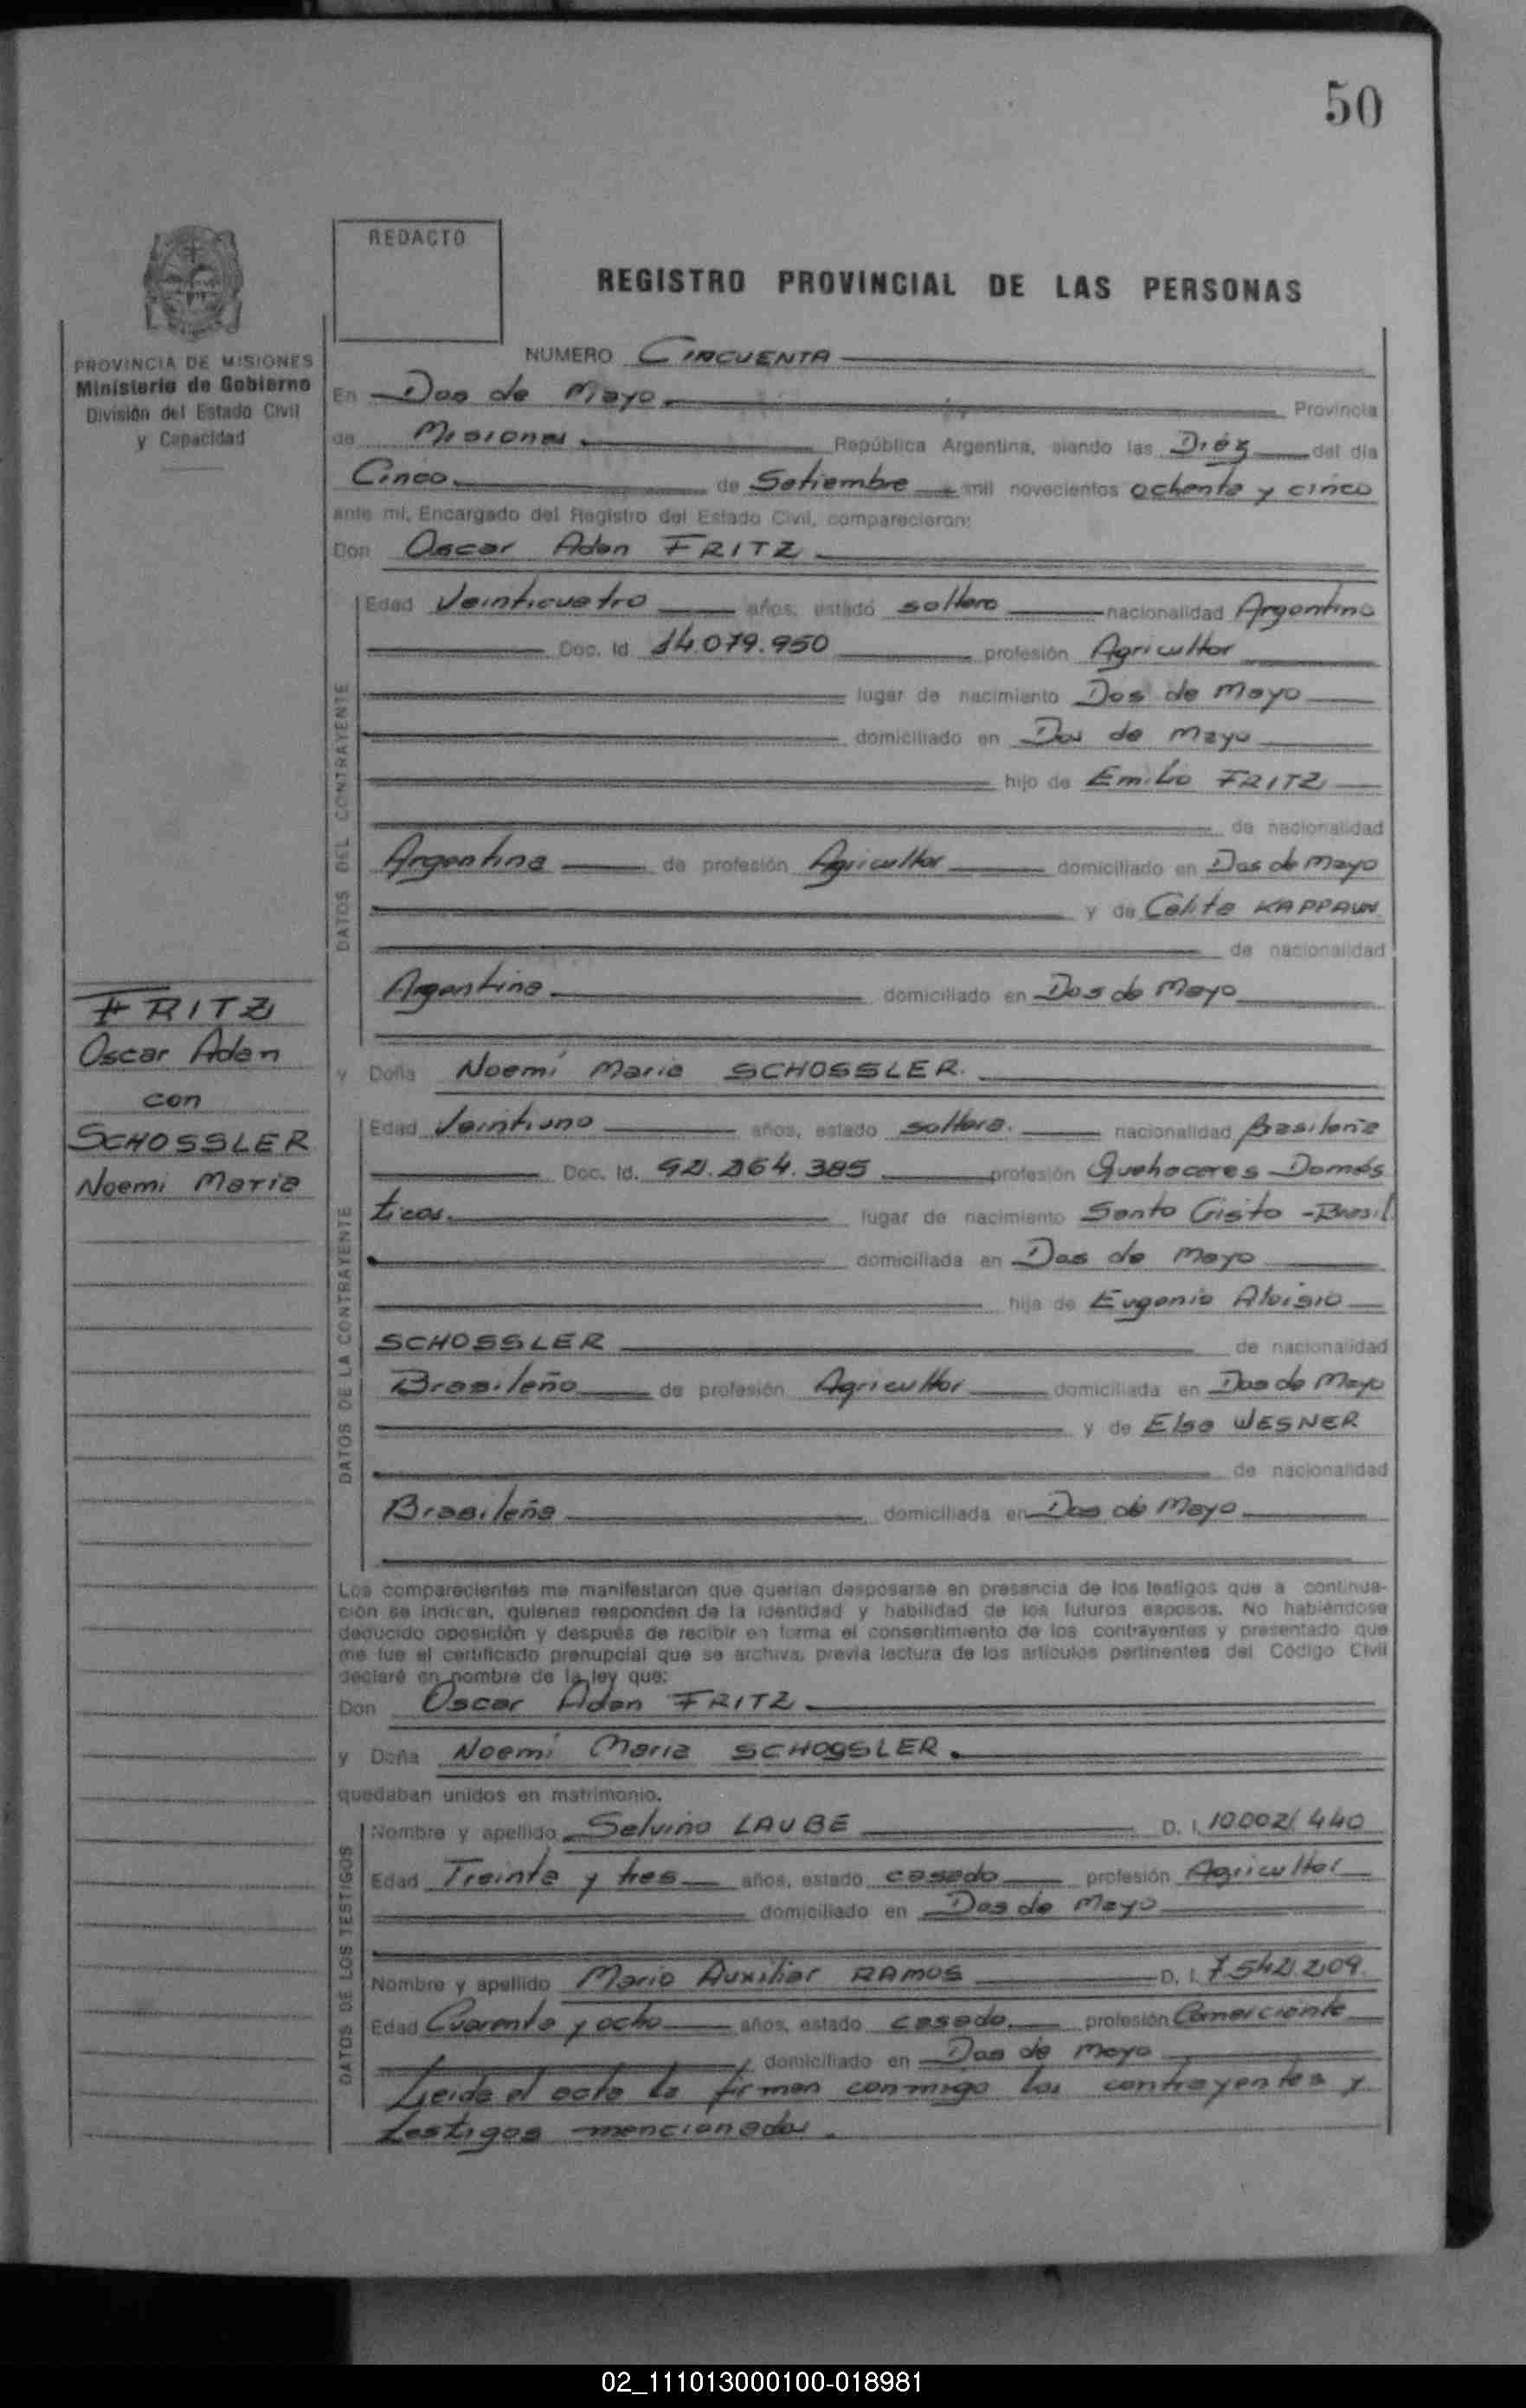 50
REDACTO
REGISTRO PROVINCIAL DE LAS PERSONAS
PROVINCIA DE MISIONES
Ministerio de Gobierno
División del Estado Civil
y Capacidad
NUMERO CINCUENTA
En Dos de Mayo Provincia
de Misiones República Argentina, siendo las Diéz del día
Cinco de Setiembre mil novecientos ochenta y cinco
ante mi, Encargado del Registro del Estado Civil, comparecieron:
Don Oscar Adan FRITZ
DATOS DEL CONTRAYENTE
Edad Veinticuatro años, estado soltero nacionalidad Argentino
Doc. Id 14.079.950 profesión Agricultor
lugar de nacimiento Dos de Mayo
domiciliado en Dos de Mayo
hijo de Emilio FRITZ
de nacionalidad
Argentina de profesión Agricultor domiciliado en Dos de Mayo
y de Celita KAPPAUN
de nacionalidad
Argentina domiciliado en Dos de Mayo
FRITZ
Oscar Adan
con
SCHOSSLER
Noemi Maria
y Doña Noemí Maria SCHOSSLER.
DATOS DE LA CONTRAYENTE
Edad Veintiuno años, estado soltera. nacionalidad Brasileña
Doc. Id. 92.264.385 profesión Quehaceres Domés
ticos. lugar de nacimiento Santo Cristo - Brasil
domiciliada en Dos de Mayo
hija de Eugenio Aloisio
SCHOSSLER de nacionalidad
Brasileño de profesión Agricultor domiciliada en Dos de Mayo
y de Elsa WESNER
de nacionalidad
Brasileña domiciliada en Dos de Mayo
Los comparecientes me manifestaron que querían desposarse en presencia de los testigos que a continua-
ción se indican, quienes responden de la identidad y habilidad de los futuros esposos. No habiéndose
deducido oposición y después de recibir en forma el consentimiento de los contrayentes y presentado que
me fue el certificado prenupcial que se archiva, previa lectura de los artículos pertinentes del Código Civil
declaré en nombre de la ley que:
Don Oscar Adan FRITZ
y Doña Noemí Maria SCHOSSLER.
quedaban unidos en matrimonio.
DATOS DE LOS TESTIGOS
Nombre y apellido Selvino LAUBE D. I. 10.002.440
Edad Treinta y tres años, estado casado profesión Agricultor
domiciliado en Dos de Mayo
Nombre y apellido Mario Auxiliar RAMOS D. I. 7.542.209.
Edad Cuarenta y ocho años, estado casado. profesión Comerciante
domiciliado en Dos de Mayo
Leida el acta la firman conmigo los contrayentes y
testigos mencionados.
02_111013000100-018981